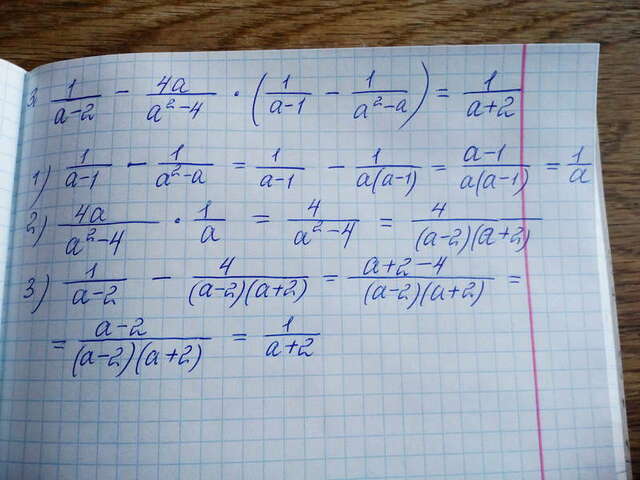 3. 1/(a-2) - 4a/(a²-4) · (1/(a-1) - 1/(a²-a)) = 1/(a+2)
1) 1/(a-1) - 1/(a²-a) = 1/(a-1) - 1/(a(a-1)) = (a-1)/(a(a-1)) = 1/a
2) 4a/(a²-4) · 1/a = 4/(a²-4) = 4/((a-2)(a+2))
3) 1/(a-2) - 4/((a-2)(a+2)) = (a+2-4)/((a-2)(a+2)) =
= (a-2)/((a-2)(a+2)) = 1/(a+2)